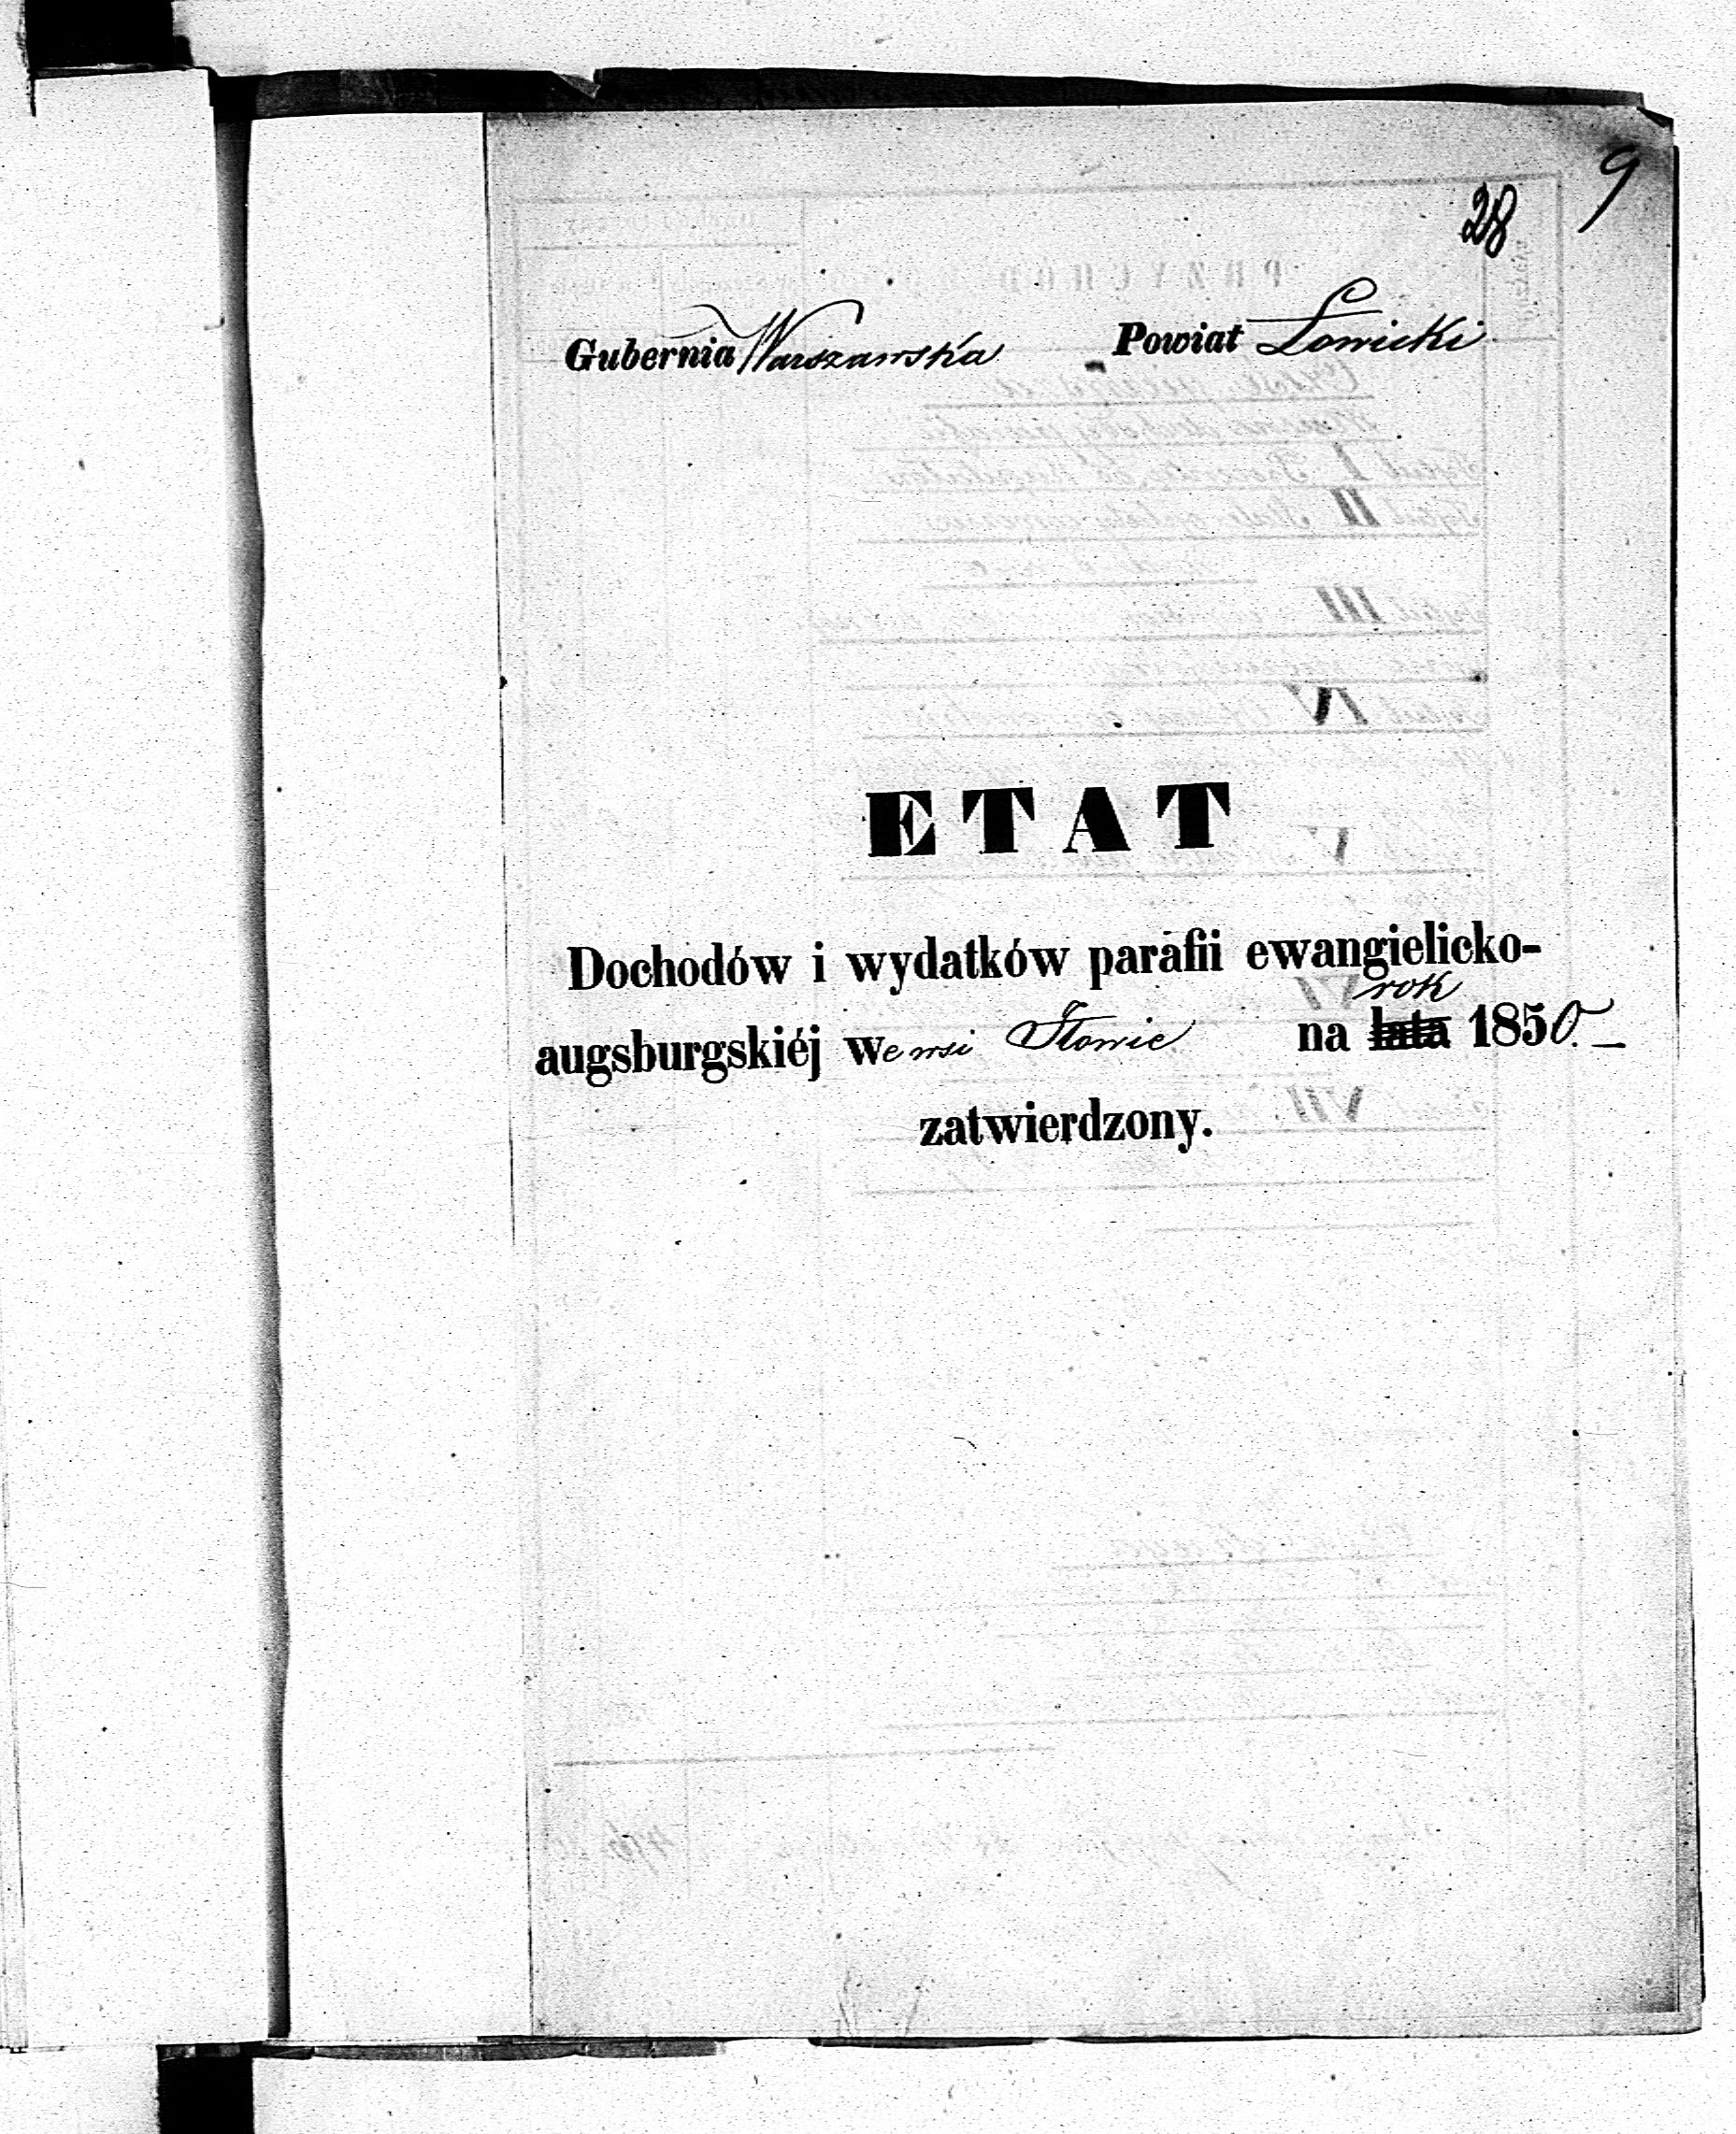 9
28
Gubernia Warszawska Powiat Łowicki
ETAT
Dochodów i wydatków parafii ewangielicko-
rok
augsburgskiéj we wsi Iłowie na lata 1850. —
zatwierdzony.